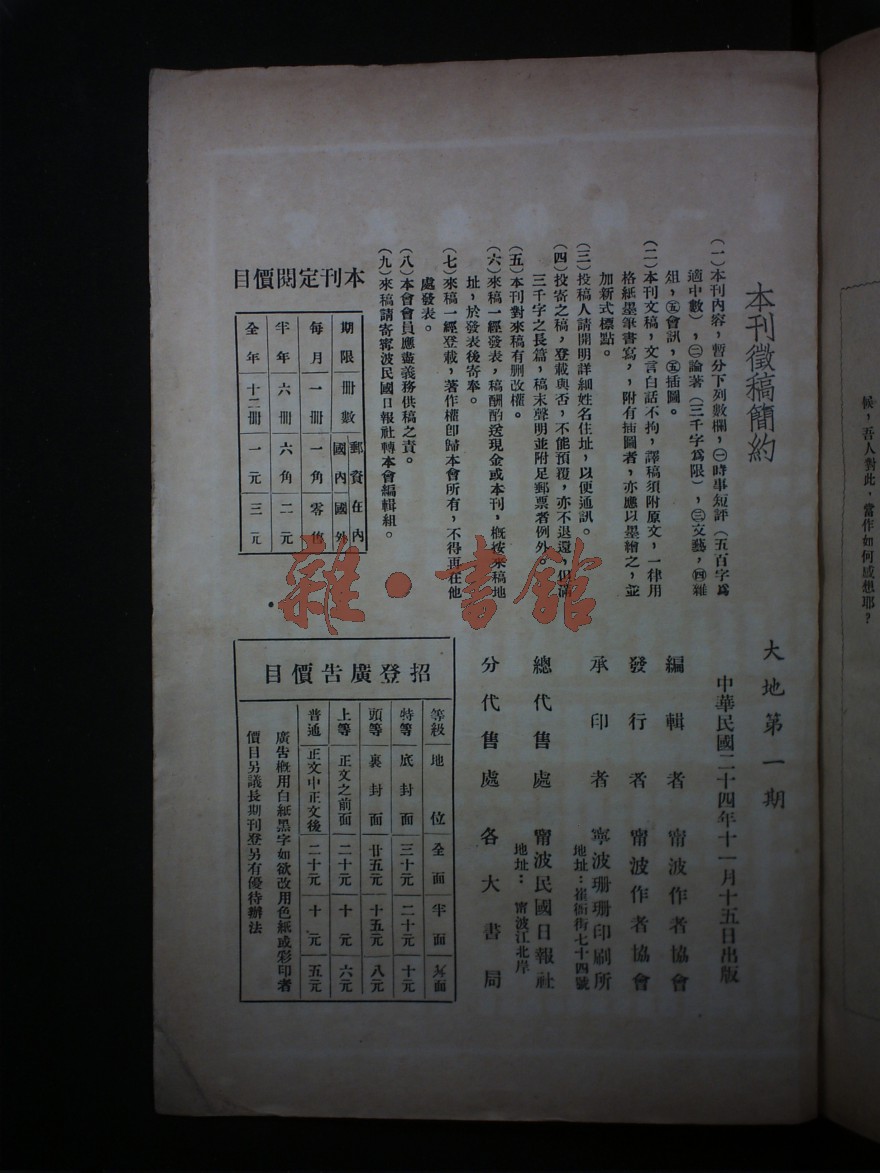 本刊徵稿簡約
（一）本刊內容，暫分下列數欄，㊀時事短評（五百字爲
適中數），㊁論著（三千字爲限），㊂文藝，㊃雜
俎，㊄會訊，㊄插圖。
（二）本刊文稿，文言白話不拘，譯稿須附原文，一律用
格紙墨筆書寫，，附有插圖者，亦應以墨繪之，並
加新式標點。
（三）投稿人請開明詳細姓名住址，以便通訊。
（四）投寄之稿，登載與否，不能預覆，亦不退還，但滿
三千字之長篇，稿末聲明並附足郵票者例外。
（五）本刊對來稿有删改權。
（六）來稿一經發表，稿酬酌送現金或本刊，概按來稿地
址，於發表後寄奉。
（七）來稿一經登載，著作權卽歸本會所有，不得再在他
處發表。
（八）本會會員應盡義務供稿之責。
（九）來稿請寄甯波民國日報社轉本會編輯組。
本刊定閱價目
期限 冊數 郵資在內 國內 國外
每月 一冊 一角 零售
半年 六冊 六角 二元
全年 十二冊 一元 三元
大地第一期
中華民國二十四年十一月十五日出版
編輯者 甯波作者協會
發行者 甯波作者協會
承印者 寧波珊珊印刷所
地址：崔衙街七十四號
總代售處 甯波民國日報社
地址：甯波江北岸
分代售處 各大書局
招登廣告價目
等級 地位 全面 半面 ¼面
特等 底封面 三十元 二十元 十元
頭等 裏封面 廿五元 十五元 八元
上等 正文之前面 二十元 十元 六元
普通 正文中正文後 二十元 十元 五元
廣告概用白紙黑字如欲改用色紙或彩印者
價目另議長期刊登另有優待辦法
雜·書館
候，吾人對此，當作如何感想耶？